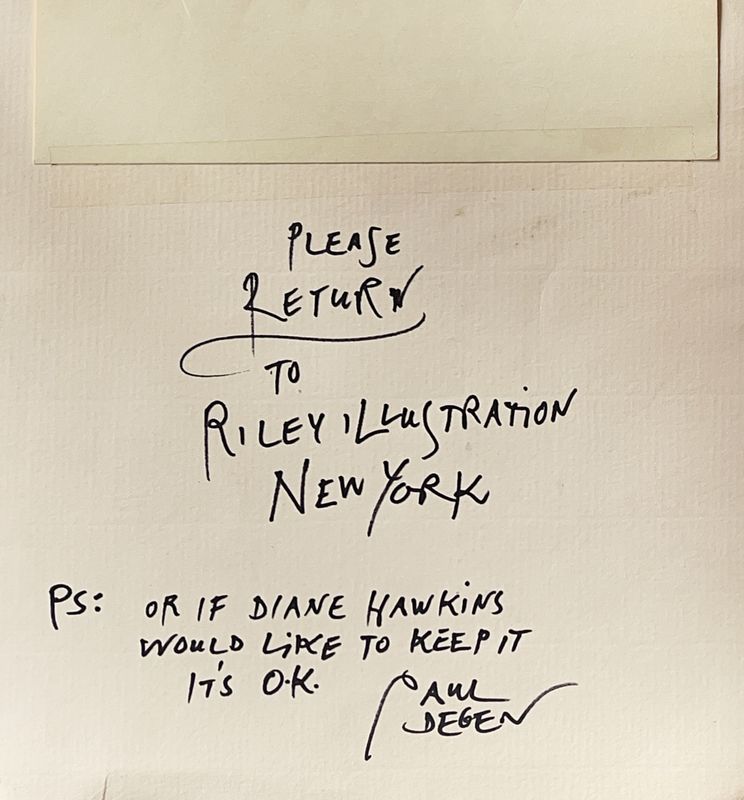 PLEASE
RETURN
TO
RILEY ILLUSTRATION
NEW YORK
PS: OR IF DIANE HAWKINS
WOULD LIKE TO KEEP IT
IT'S O.K.
PAUL
DEGEN